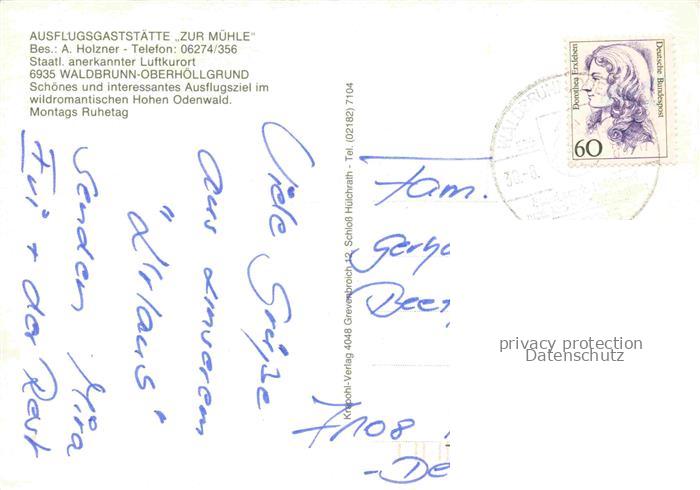 AUSFLUGSGASTSTÄTTE „ZUR MÜHLE"
Bes.: A. Holzner - Telefon: 06274/356
Staatl. anerkannter Luftkurort
6935 WALDBRUNN-OBERHÖLLGRUND
Schönes und interessantes Ausflugsziel im
wildromantischen Hohen Odenwald.
Montags Ruhetag
Viele Grüße
aus unserem
"Urlaub"
senden Mira
+ der Rest
Krapohl-Verlag 4048 Grevenbroich 12, Schloß Hülchrath - Tel. (02182) 7104
Dorothea Erxleben
Deutsche Bundespost
60
WALDBRUNN
Fam.
Gerha
Beet
7108
-De
privacy protection
Datenschutz